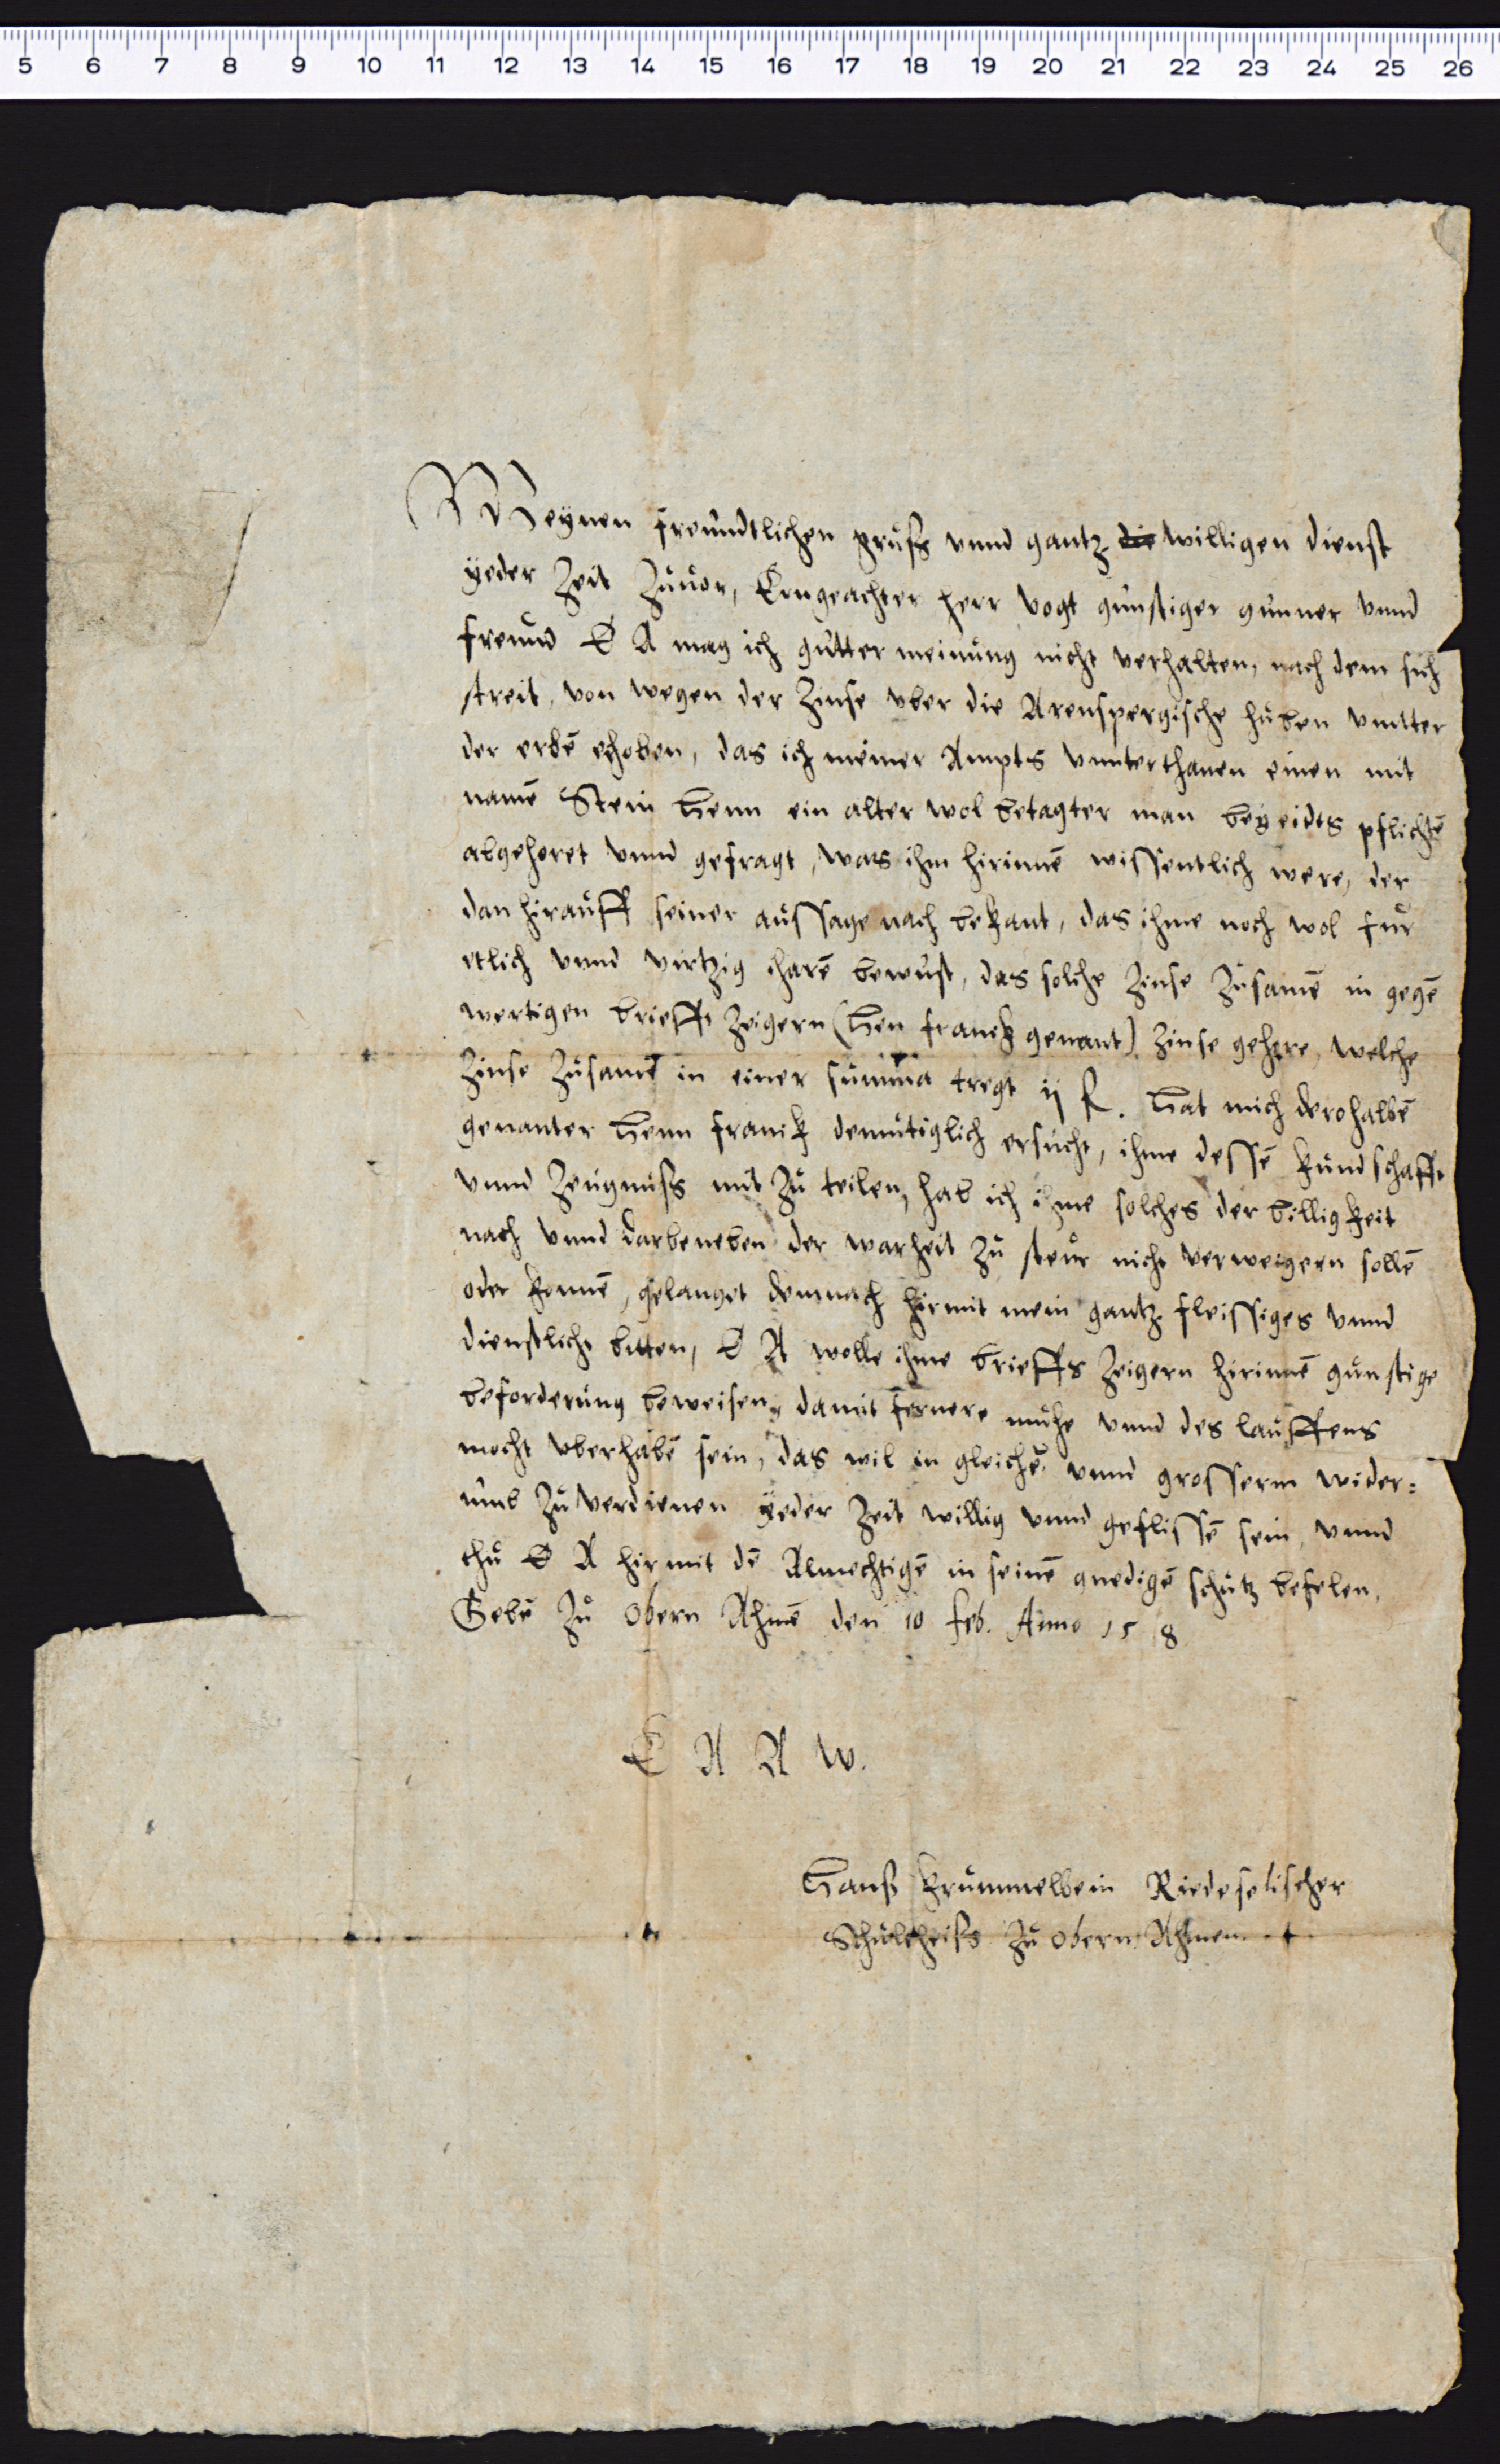 5 6 7 8 9 10 11 12 13 14 15 16 17 18 19 20 21 22 23 24 25 26
Meynen freundtlichen gruß vnnd gantz die willigen dienst
yeder Zeit Zuuor, Erngeachter herr Vogt gunstiger gunner vnnd
freund E A mag ich gutter meinung nicht verhalten, nach dem sich
streit, von wegen der Zinse vber die Arenspergische huben vnttер
der erbē erhoben, das ich meiner Ampts vnnterthanen einen mit
namē Stein Henn ein alter wol betagter man bey eidts pflichtē
abgehoret vnnd gefragt, was ihm hirinnē wissentlich were, der
dan hirauff seiner aussage nach bekant, das ihme noch wol fur
etlich vnnd virtzig iharē bewust, das solche Zinse Zusamē in gegē
wertigen brieffs Zeigern (Hen franck genant) Zinse gehore, welche
Zinse Zusamē in einer summa tregt ij
Hat mich derohalbē
genanter Henn franck demutiglich ersucht, ihme dessē kundschafft
vnnd Zeugnuß mit Zu teilen, hab ich ihme solches der billigkeit
nach vnnd darbeneben der warheit Zu steur nicht verweigern sollē
oder konnē, gelanget demnach hirmit mein gantz fleissiges vnnd
dienstlichs bitten, E A wolle ihme brieffs Zeigern hirinnē gunstige
beforderung beweisen, damit fernere muhe vnnd des lauffens
mocht vberhabē sein, das wil in gleichē vnnd grosserm wider=
umb Zu verdienen yeder Zeit willig vnnd geflissē sein, vnnd
thu E A hirmit dē Almechtigē in seinē gnedigē schutz befelen,
Gebē Zu Obern Ahmē den 10 feb. Anno 15 8
E A A W.
Hanß Krummelbein Riedeselischer
Schultheiß Zu Obern Ahmen